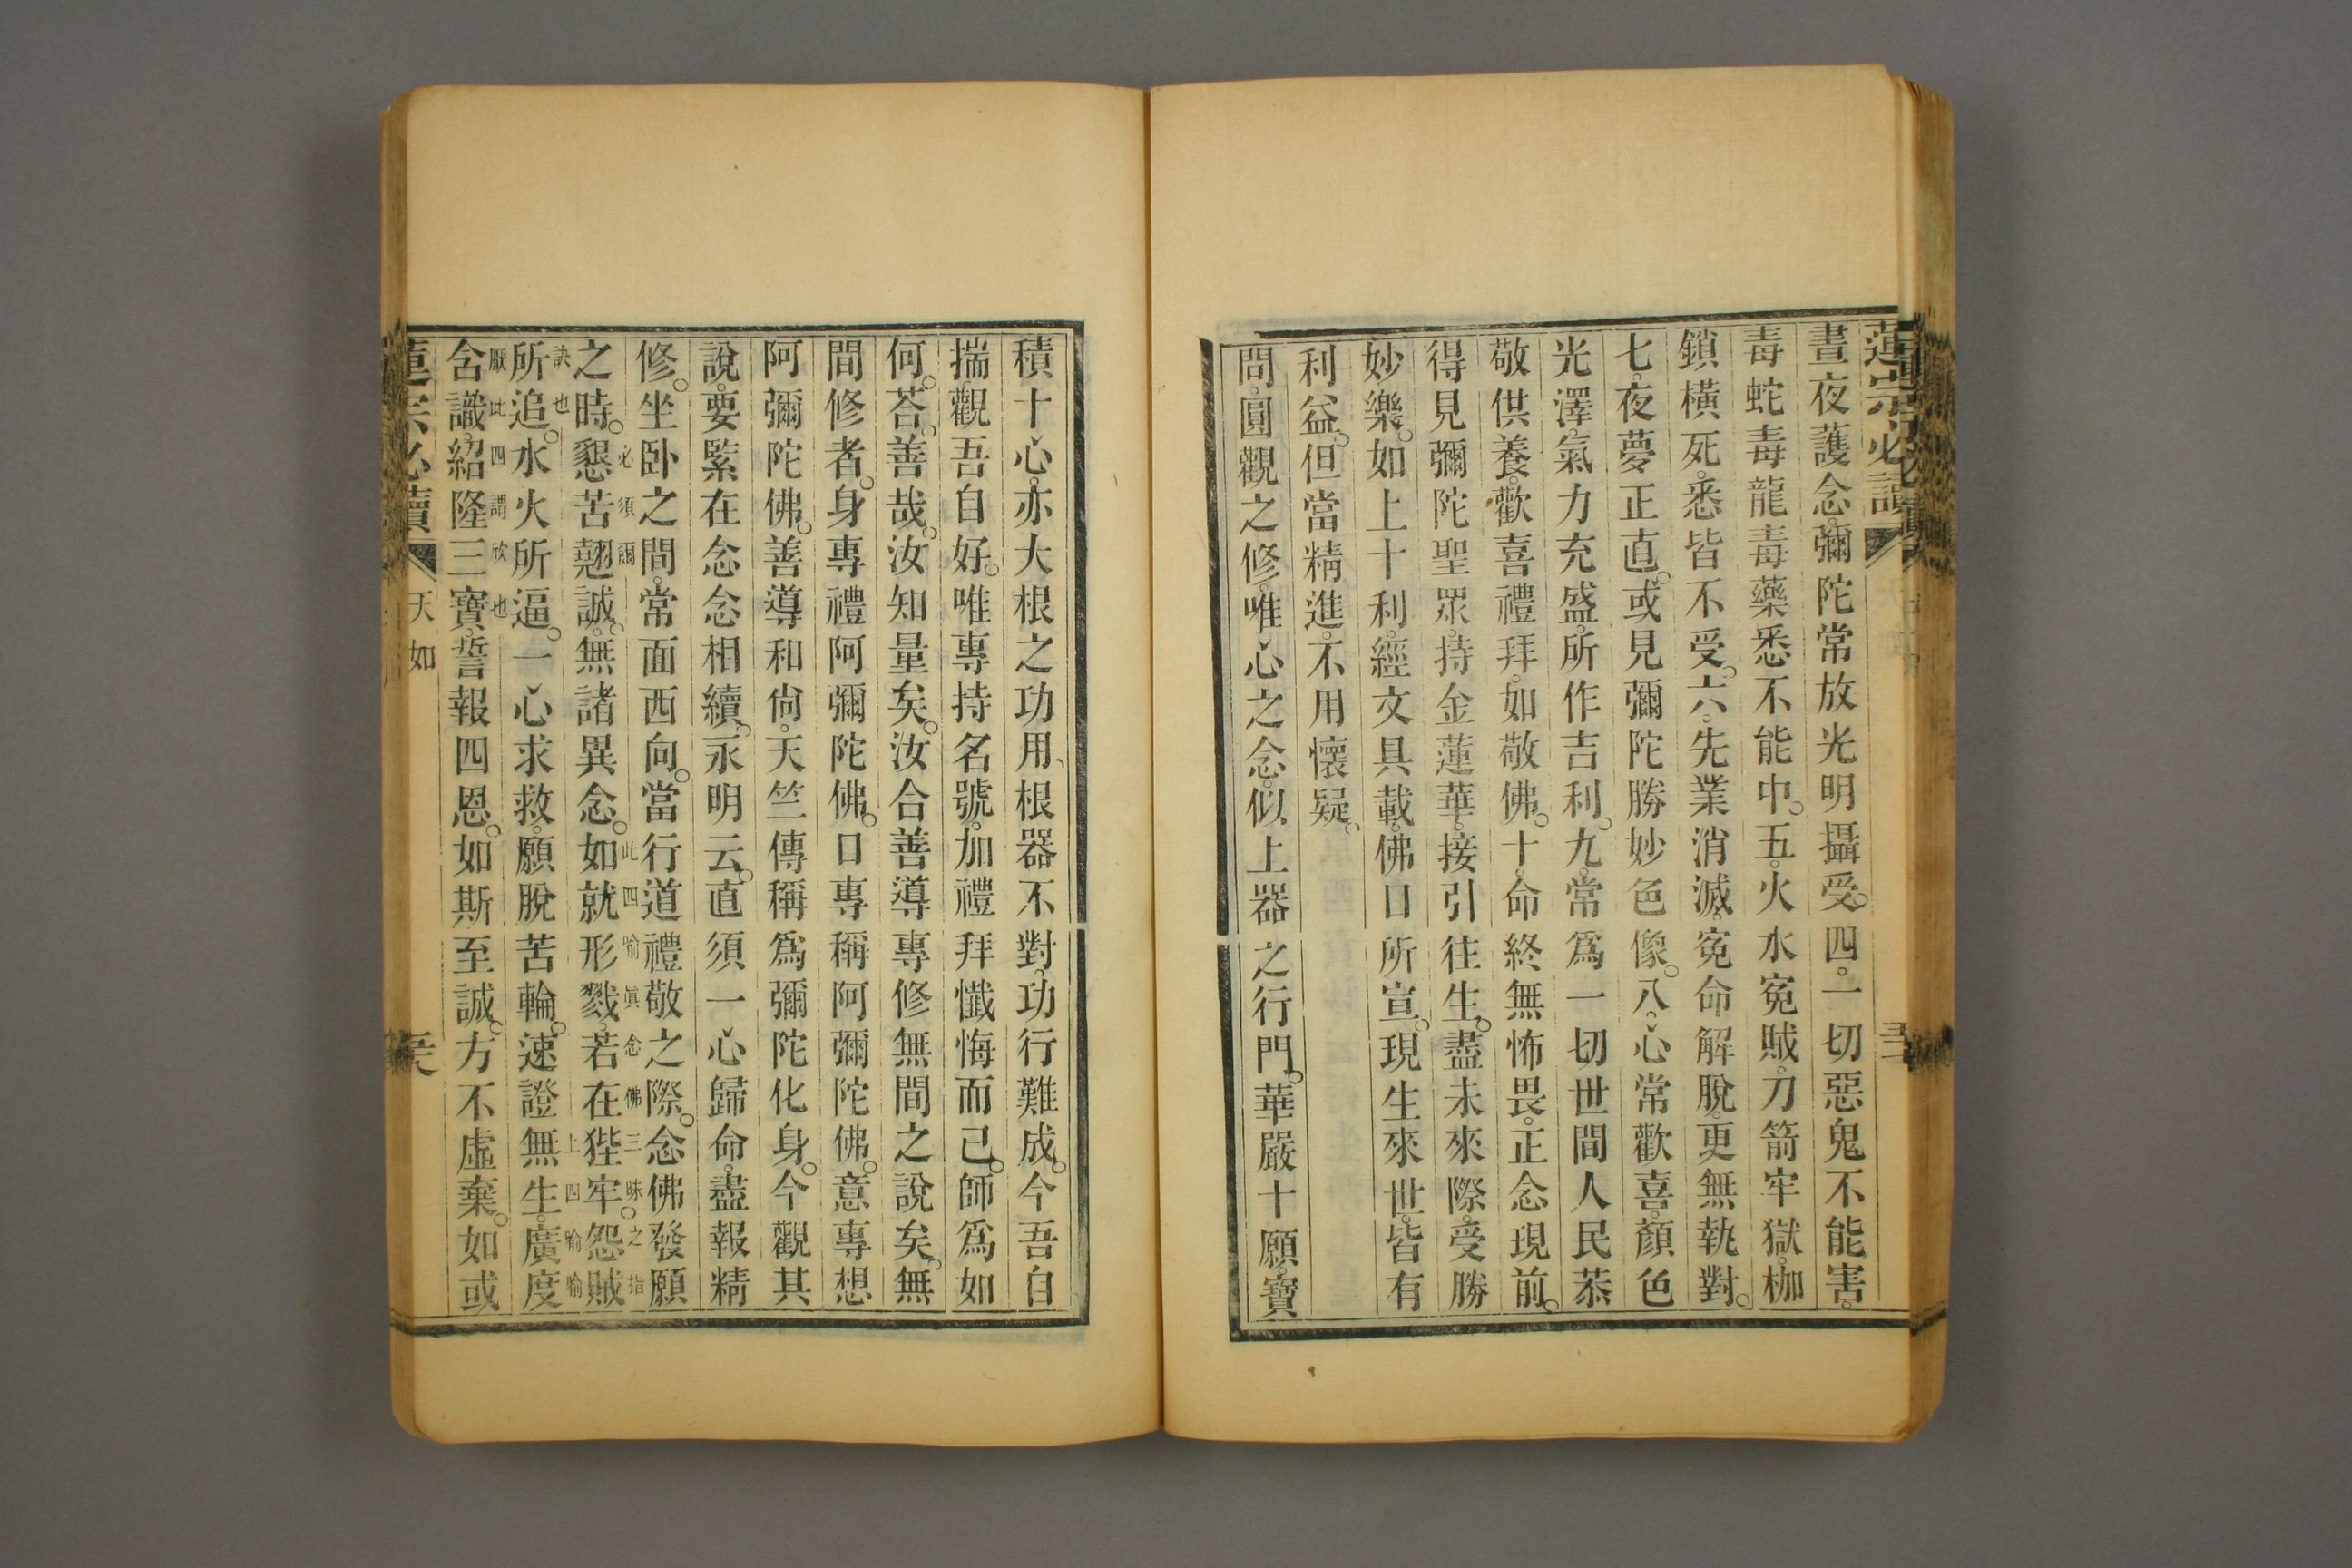 蓮宗必讀
晝夜護念。彌陀常放光明攝受。四。一切惡鬼不能害。
毒蛇毒龍毒藥悉不能中。五。火水寃賊。刀箭牢獄。枷
鎖橫死。悉皆不受。六。先業消滅。寃命解脫。更無執對。
七。夜夢正直。或見彌陀勝妙色像。八。心常歡喜。顏色
光澤。氣力充盛。所作吉利。九。常爲一切世間人民恭
敬供養。歡喜禮拜。如敬佛。十。命終無怖畏。正念現前。
得見彌陀聖眾。持金蓮華。接引往生。盡未來際。受勝
妙樂。如上十利。經文具載。佛口所宣。現生來世。皆有
利益。但當精進。不用懷疑。
問。圓觀之修。唯心之念。似上器之行門。華嚴十願。寶
積十心。亦大根之功用、根器不對。功行難成。今吾自
揣觀吾自好。唯專持名號。加禮拜懺悔而已。師爲如
何。荅。善哉。汝知量矣。汝合善導專修無間之說矣。無
間修者。身專禮阿彌陀佛。口專稱阿彌陀佛。意專想
阿彌陀佛。善導和尙。天竺傳稱爲彌陀化身。今觀其
說。要緊在念念相續。永明云。直須一心歸命。盡報精
修。坐卧之間。常面西向。當行道禮敬之際。念佛發願
之時。懇苦翹誠。無諸異念。如就形戮。若在狴牢。怨賊
必須爾 此四喻眞念佛三昧之指
所追。水火所逼。一心求救。願脫苦輪。速證無生。廣度
訣也 上四喻喻
含識。紹隆三寶。誓報四恩。如斯至誠。方不虛棄。如或
厭此四謂欣也
蓮宗必讀
天如